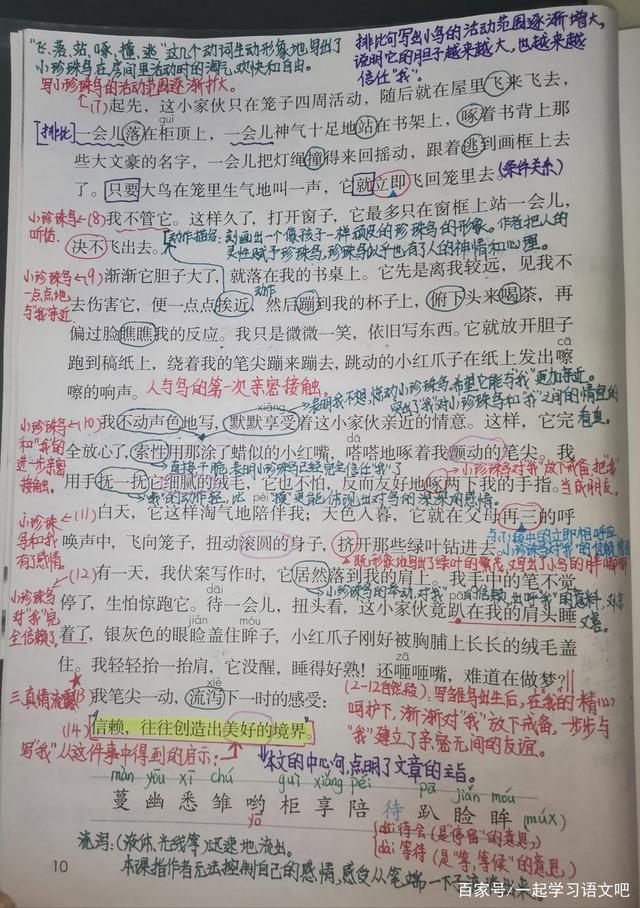 "飞、落、站、啄、撞、逃"这几个动词生动形象地写出了
小珍珠鸟在房间里活动时的淘气、欢快和自由。
排比句写出小鸟的活动范围逐渐增大,
说明它的胆子越来越大,也越来越
信任"我"。
写小珍珠鸟的活动范围逐渐扩大。
(7)起先,这小家伙只在笼子四周活动,随后就在屋里飞来飞去,
guì
[排比]
一会儿落在柜顶上,一会儿神气十足地站在书架上,啄着书背上那
些大文豪的名字,一会儿把灯绳撞得来回摇动,跟着逃到画框上去
了。只要大鸟在笼里生气地叫一声,它就立即飞回笼里去。(条件关系)
小珍珠鸟
听话。
(8)我不管它。这样久了,打开窗子,它最多只在窗框上站一会儿,
决不飞出去。
动作描写:刻画出一个像孩子一样顽皮的珍珠鸟的形象。作者把人的
灵性赋予珍珠鸟,珍珠鸟似乎也有了人的神情和心理。
小珍珠鸟
一点点地
与"我"亲近
(9)渐渐它胆子大了,就落在我的书桌上。它先是离我较远,见我不
动作
去伤害它,便一点点挨近,然后蹦到我的杯子上,俯下头来喝茶,再
偏过脸瞧瞧我的反应。我只是微微一笑,依旧写东西。它就放开胆子
跑到稿纸上,绕着我的笔尖蹦来蹦去,跳动的小红爪子在纸上发出嚓
cā
嚓的响声。
人与鸟的第一次亲密接触。
表明我不想惊动小珍珠鸟,希望它能与"我"更加亲近。
突出了"我"对小珍珠鸟和"我"之间的情谊的
xiǎng
小珍珠鸟
和"我"的
进一步亲密
接触。
(10)我不动声色地写,默默享受着这小家伙亲近的情意。这样,它完
全放心了,索性用那涂了蜡似的小红嘴,嗒嗒地啄着我颤动的笔尖。我
dā
直接干脆,表明小珍珠鸟已经完全信任"我"了
小珍珠鸟对"我"放下戒备,把"我"
当成朋友。
用手抚一抚它细腻的绒毛,它也不怕,反而友好地啄两下我的手指。
"我"的动作轻,比"摸"更能体现出对鸟的深深的感情。
péi
小珍珠
鸟和我
有了感情。
(11)白天,它这样淘气地陪伴我;天色入暮,它就在父母再三的呼
唤声中,飞向笼子,扭动滚圆的身子,挤开那些绿叶钻进去。
小珍珠鸟
对"我"完
全信赖了
(12)有一天,我伏案写作时,它居然落到我的肩上。我手中的笔不觉
dāi
停了,生怕惊跑它。待一会儿,扭头看,这小家伙竟趴在我的肩头睡
pā
着了,银灰色的眼睑盖住眸子,小红爪子刚好被胸脯上长长的绒毛盖
住。我轻轻抬一抬肩,它没醒,睡得好熟!还咂咂嘴,难道在做梦?
zā
三、真情流露
(13)我笔尖一动,流泻下一时的感受:
xiè
(14)信赖,往往创造出美好的境界。
写"我"从这件事中得到的启示:
本文的中心句,点明了文章的主旨。
(2-12自然段):写雏鸟出生后,在我的精心
呵护下,渐渐对"我"放下戒备,一步步与
"我"建立了亲密无间的友谊。
màn yōu xī chú guì xiǎng péi pā jiǎn móu
蔓幽悉雏哟柜享陪待趴睑眸
yō
流泻:(液体、光线等)迅速地流出。
本课指作者无法控制自己的感情,感受从笔端一下子流淌出来。
dāi:待会(是"停留"的意思)
dài:等待(是"等,等候"的意思)
10
百家号/一起学习语文吧